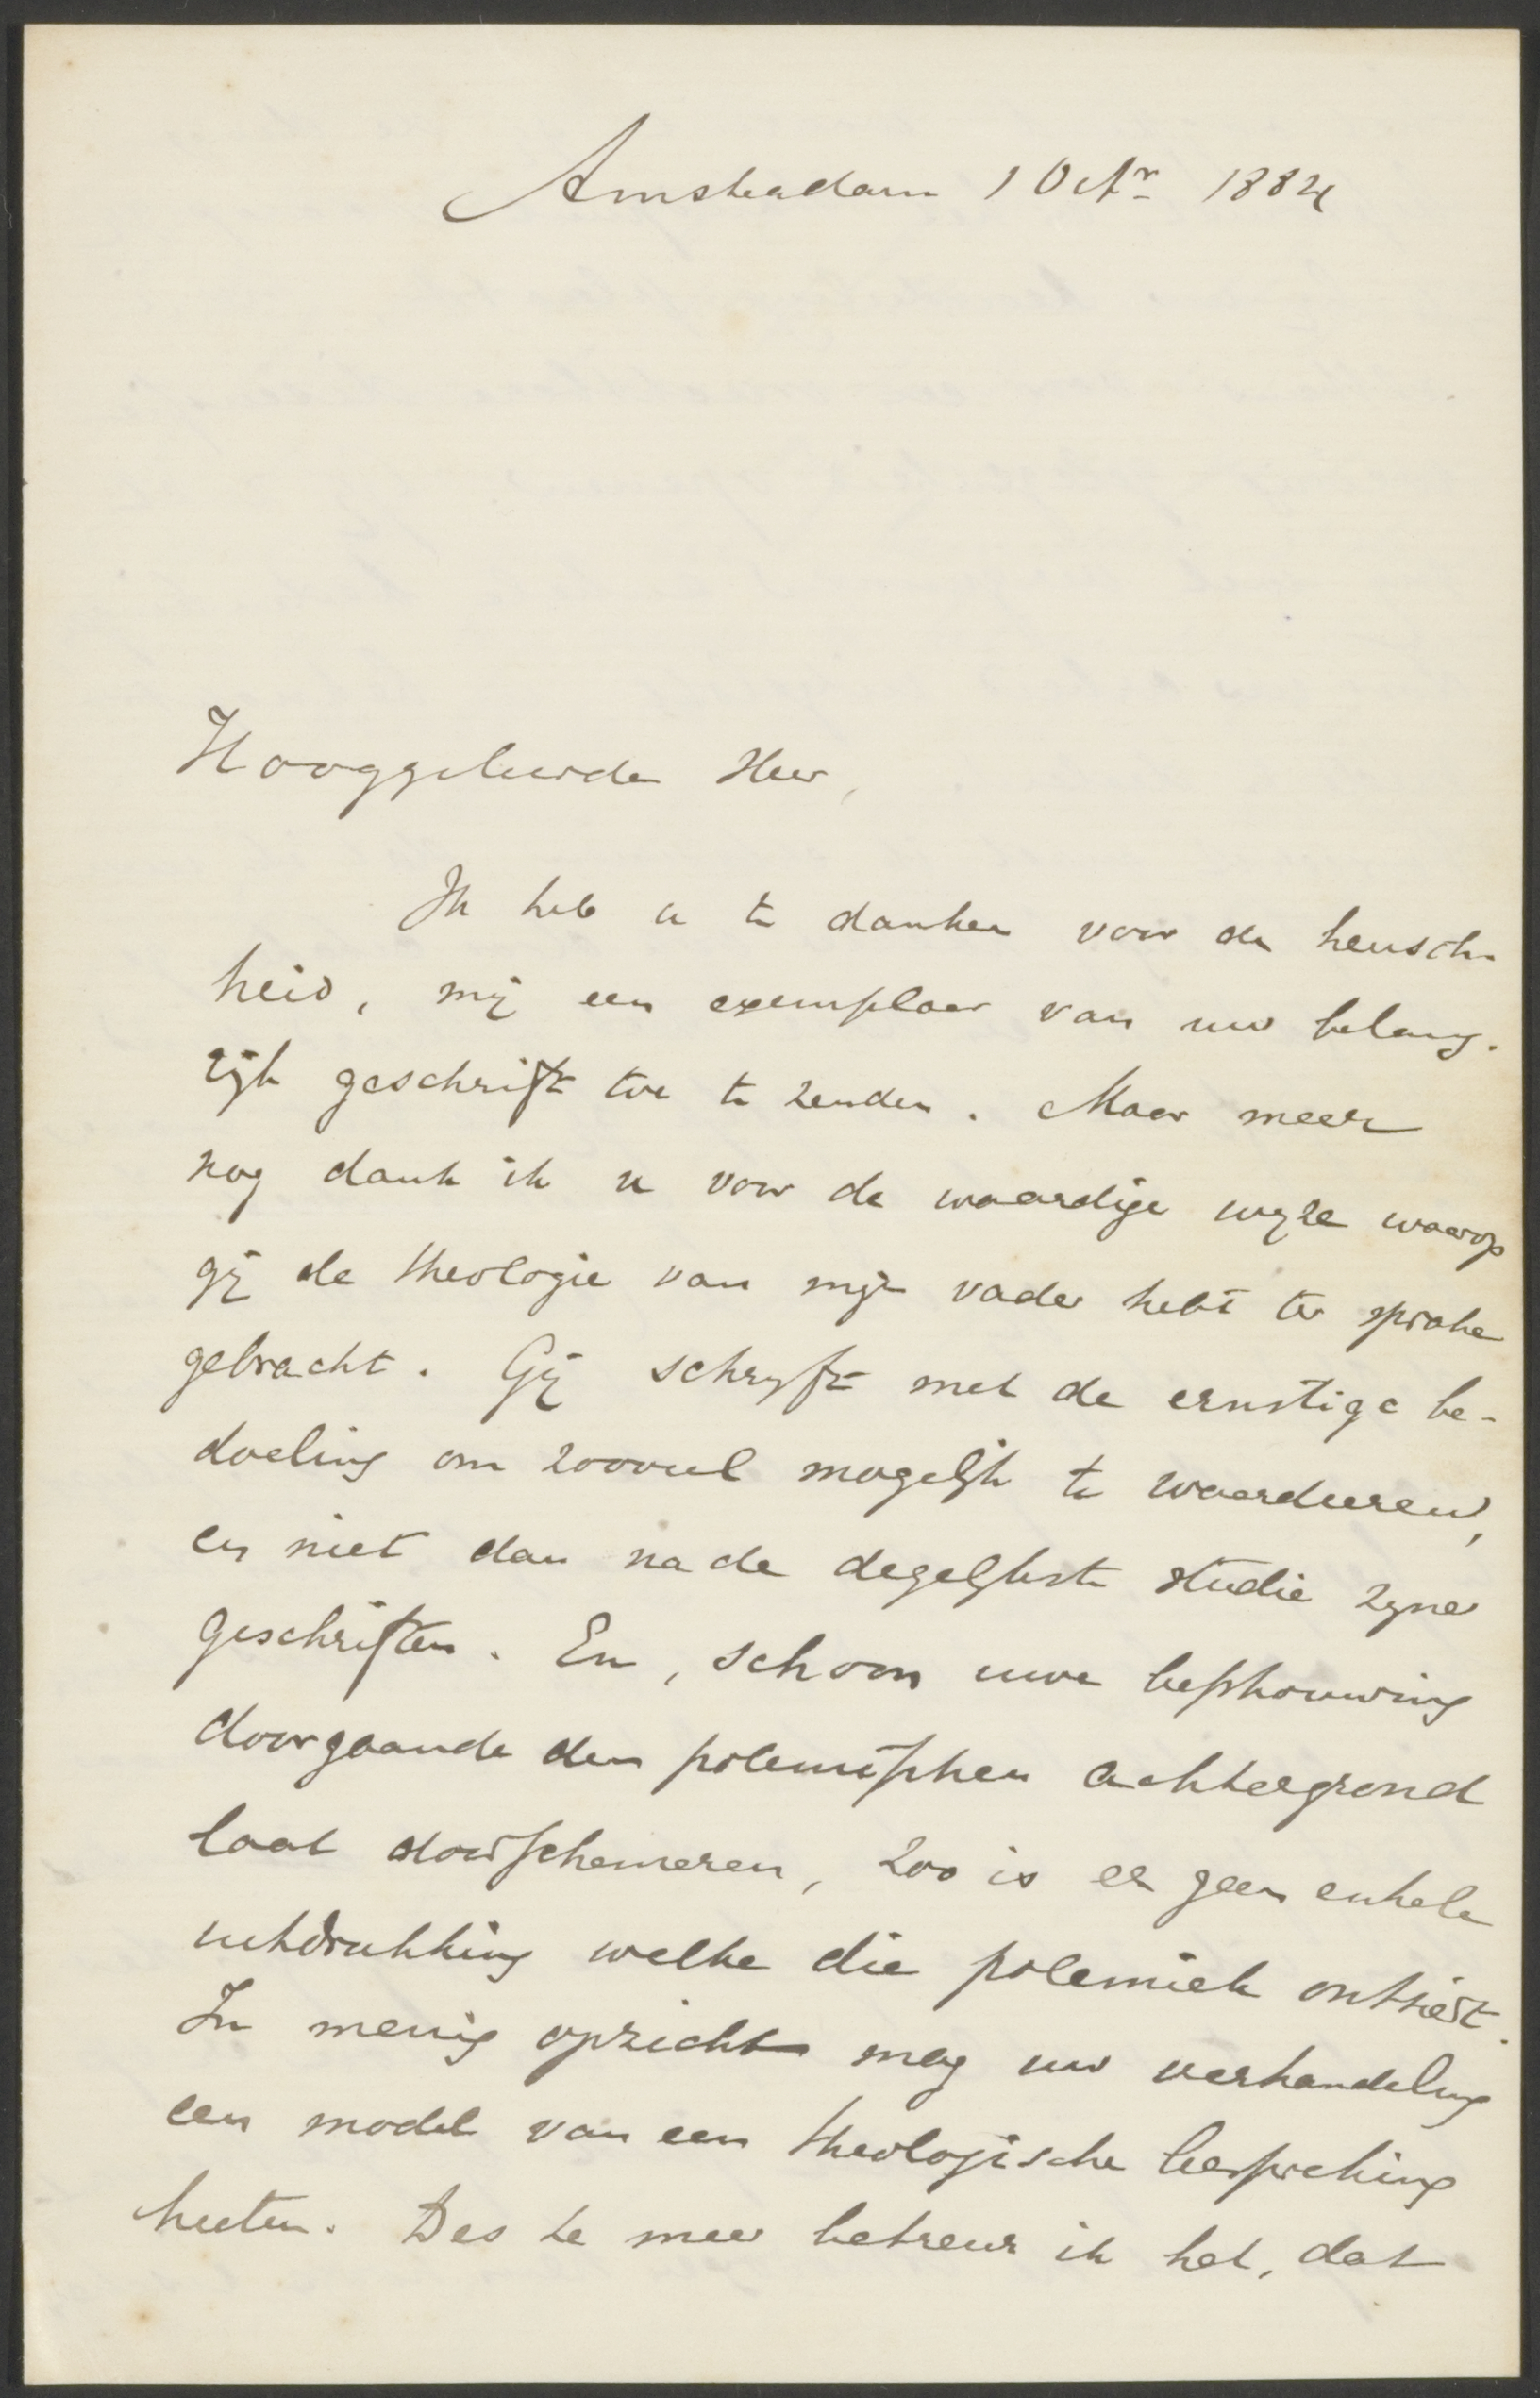 Amsterdam 1 Octr 1884
Hooggeleerde Heer,
Ik heb u te danken voor de heusch-
heid, mij een exemplaar van uw belang-
rijk geschrift toe te zenden. Maar meer
nog dank ik u voor de waardige wijze waarop
gij de theologie van mijn vader hebt ter sprake
gebracht. Gij schrijft met de ernstige be-
doeling om zooveel mogelijk te waardeeren,
en niet dan na de degelijkste studie zijner
geschriften. En, schoon uwe beschouwing
doorgaande den polemischen achtergrond
laat doorschemeren, zoo is er geen enkele
uitdrukking welke die polemiek ontsiert.
In menig opzicht mag uw verhandeling
een model van een theologische bespreking
heeten. Des te meer betreur ik het, dat